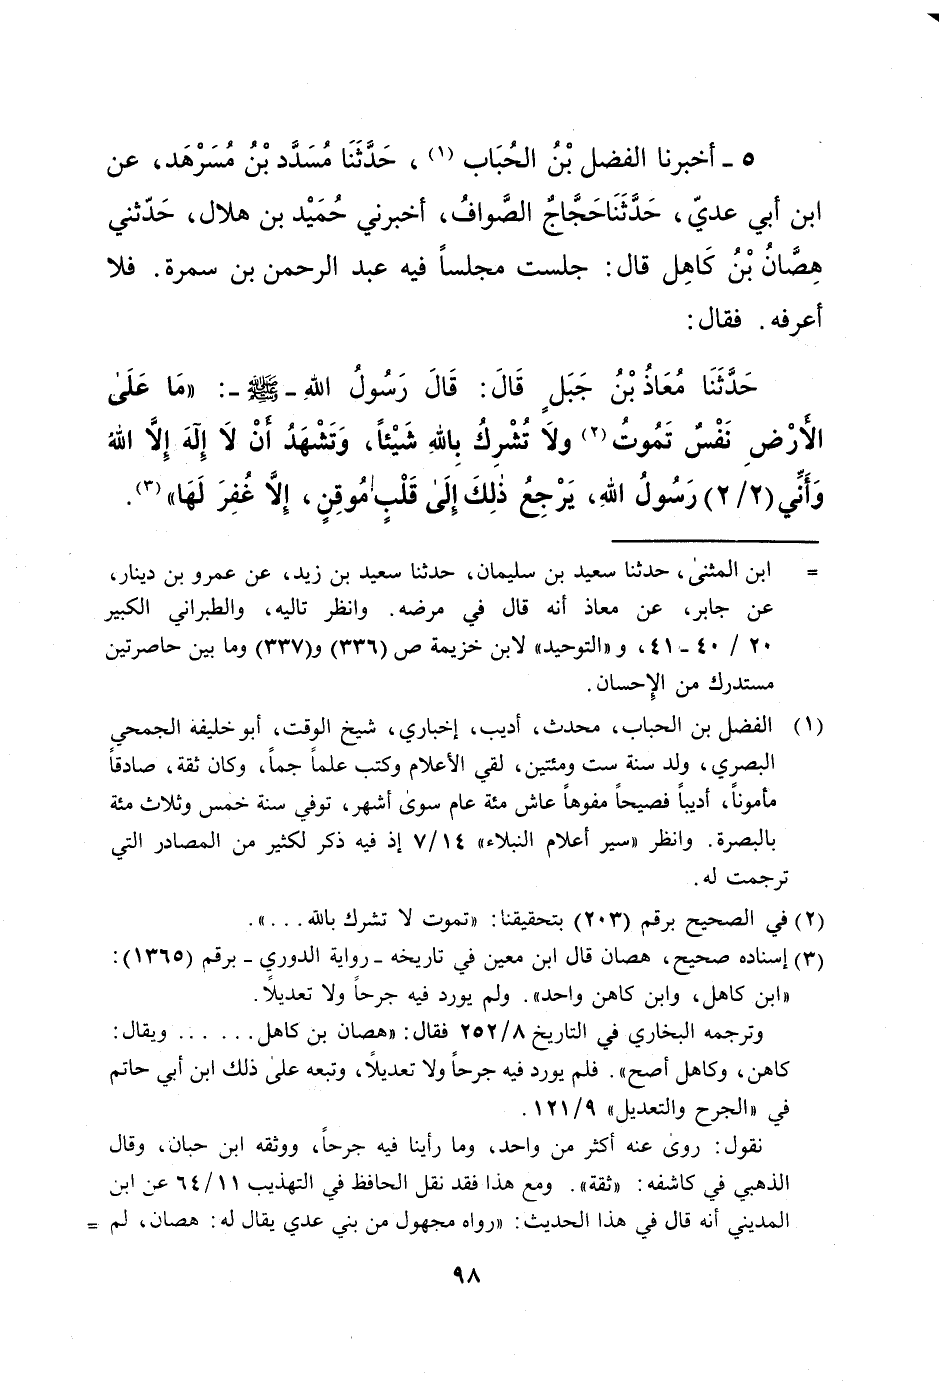 ٥ ـ أخبرنا الفضل بْنُ الحُبَاب (١) ، حَدَّثَنَا مُسَدَّد بْنُ مُسَرْهَد، عن
ابن أبي عديّ، حَدَّثَنَا حَجَّاجٌ الصَّوافُ، أخبرني حُمَيْد بن هلال، حَدّثني
هِصَّانُ بْنُ كَاهِل قال: جلست مجلساً فيه عبد الرحمن بن سمرة. فلا
أعرفه. فقال:
حَدَّثَنَا مُعَاذُ بْنُ جَبَلٍ قَالَ: قَالَ رَسُولُ اللهِ ـ ﷺ ـ: «مَا عَلَىٰ
الأَرْضِ نَفْسٌ تَمُوتُ (٢) ولاَ تُشْرِكُ بِاللهِ شَيْئاً، وَتَشْهَدُ أَنْ لَا إِلٰهَ إِلَّا اللهُ
وَأَنِّي (٢/٢) رَسُولُ اللهِ، يَرْجِعُ ذٰلِكَ إِلَىٰ قَلْبٍ مُوقِنٍ، إِلَّا غُفِرَ لَهَا» (٣).
= ابن المثنىٰ، حدثنا سعيد بن سليمان، حدثنا سعيد بن زيد، عن عمرو بن دينار،
عن جابر، عن معاذ أنه قال في مرضه. وانظر تاليه، والطبراني الكبير
٢٠ / ٤٠ ـ ٤١، و «التوحيد» لابن خزيمة ص (٣٣٦) و(٣٣٧) وما بين حاصرتين
مستدرك من الإحسان.
(١) الفضل بن الحباب، محدث، أديب، إخباري، شيخ الوقت، أبو خليفة الجمحي
البصري، ولد سنة ست ومئتين، لقي الأعلام وكتب علماً جماً، وكان ثقة، صادقاً
مأموناً، أديباً فصيحاً مفوهاً عاش مئة عام سوىٰ أشهر، توفي سنة خمس وثلاث مئة
بالبصرة. وانظر «سير أعلام النبلاء» ٧/١٤ إذ فيه ذكر لكثير من المصادر التي
ترجمت له.
(٢) في الصحيح برقم (٢٠٣) بتحقيقنا: «تموت لا تشرك بالله...».
(٣) إسناده صحيح، هصان قال ابن معين في تاريخه ـ رواية الدوري ـ برقم (١٣٦٥):
«ابن كاهل، وابن كاهن واحد». ولم يورد فيه جرحاً ولا تعديلاً.
وترجمه البخاري في التاريخ ٢٥٢/٨ فقال: «هصان بن كاهل...... ويقال:
كاهن، وكاهل أصح». فلم يورد فيه جرحاً ولا تعديلاً، وتبعه علىٰ ذلك ابن أبي حاتم
في «الجرح والتعديل» ١٢١/٩.
نقول: روىٰ عنه أكثر من واحد، وما رأينا فيه جرحاً، ووثقه ابن حبان، وقال
الذهبي في كاشفه: «ثقة». ومع هذا فقد نقل الحافظ في التهذيب ٦٤/١١ عن ابن
المديني أنه قال في هذا الحديث: «رواه مجهول من بني عدي يقال له: هصان، لم =
٩٨